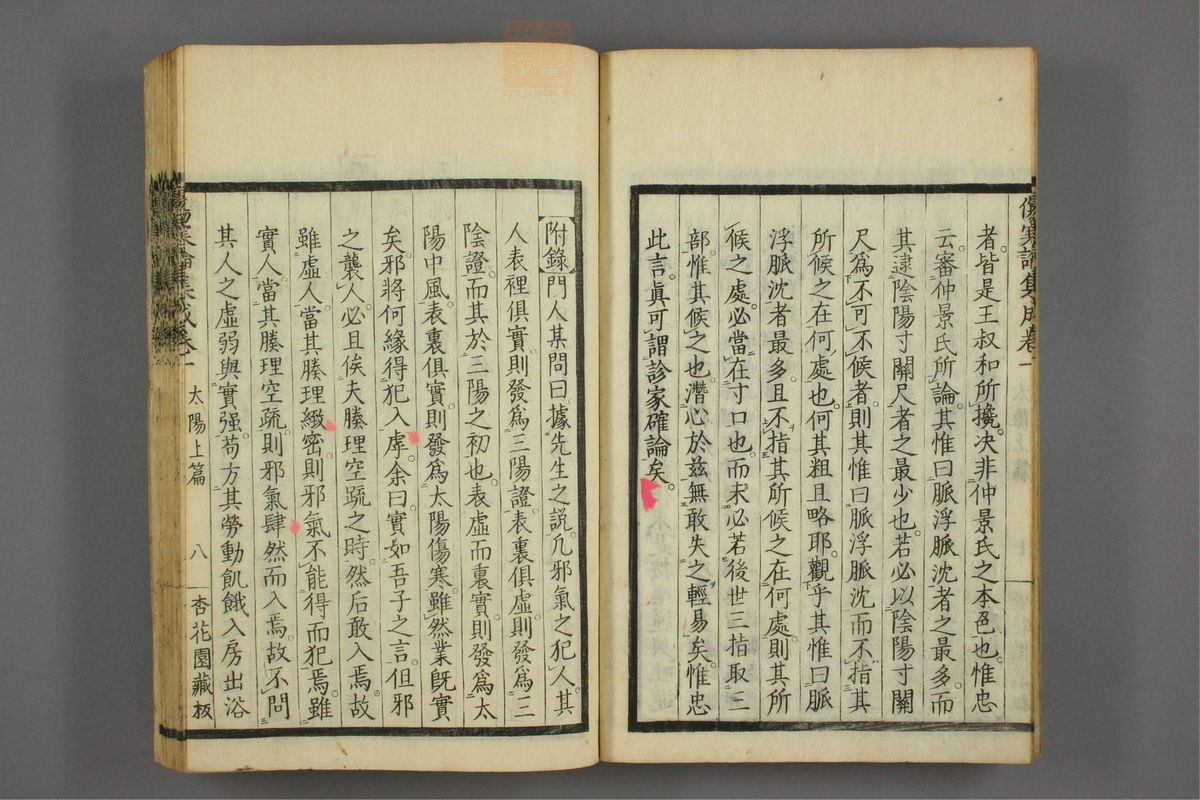 傷寒論集成卷一
者。皆是王叔和所攙。决非仲景氏之本色也。惟忠
云。審仲景氏所論。其惟曰脈浮脈沈者之最多。而
其逮陰陽寸關尺者之最少也。若必以陰陽寸關
尺爲不可不候者。則其惟曰脈浮脈沈而不指其
所候之在何處也。何其粗且略耶。觀乎其惟曰脈
浮脈沈者最多。且不指其所候之在何處。則其所
候之處。必當在寸口也。而未必若後世三指取三
部。惟其候之也。潛心於玆無敢失之輕易矣。惟忠
此言。眞可謂診家確論矣。
附錄門人某問曰。據先生之説。凢邪氣之犯人。其
人表裡俱實。則發爲三陽證。表裏俱虛。則發爲三
陰證。而其於三陽之初也。表虛而裏實。則發爲太
陽中風。表裏俱實。則發爲太陽傷寒。雖然業既實
矣。邪將何緣得犯入虖。余曰。實如吾子之言。但邪
之襲人。必且俟夫腠理空疏之時。然后敢入焉。故
雖虛人。當其腠理緻密。則邪氣不能得而犯焉。雖
實人。當其腠理空疏。則邪氣肆然而入焉。故不問
其人之虛弱與實强。苟方其勞動飢餓入房出浴
太陽上篇
八
杏花園藏板